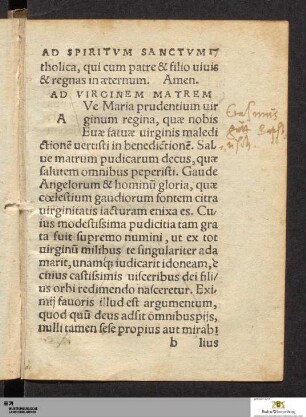 AD SPIRITVM SANCTVM 17
tholica, qui cum patre & filio uiuis
& regnas in æternum. Amen.
AD VIRGINEM MATREM
Ve Maria prudentium uir
A ginum regina, quæ nobis
Euæ fatuæ uirginis maledi
ctionē uertisti in benedictionē. Sal
ue matrum pudicarum decus, quæ
salutem omnibus peperisti. Gaude
Angelorum & hominū gloria, quæ
cœlestium gaudiorum fontem citra
uirginitatis iacturam enixa es. Cu
ius modestissima pudicitia tam gra
ta fuit supremo numini, ut ex tot
uirginū milibus te singulariter ada
marit, unamq́; iudicarit idoneam, è
cuius castissimis uisceribus dei fili⸗
us orbi redimendo nasceretur. Exi⸗
mij fauoris illud est argumentum,
quod quū deus adsit omnibus pijs,
nulli tamen sese propius aut mirabi
b lius